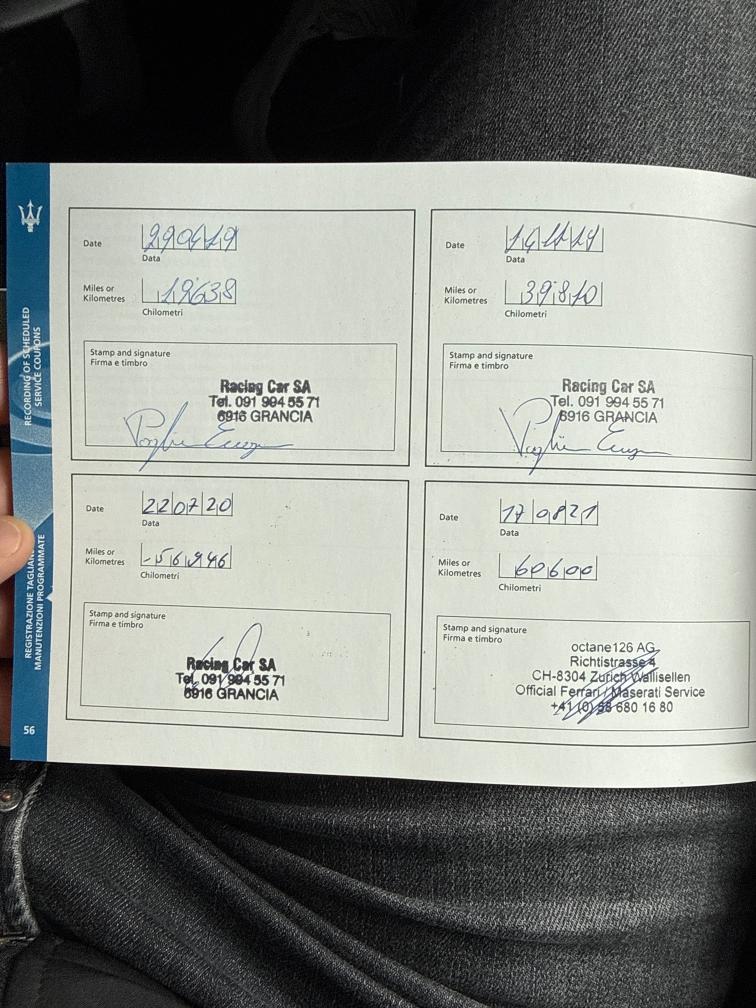 RECORDING OF SCHEDULED
SERVICE COUPONS
REGISTRAZIONE TAGLIAN
MANUTENZIONI PROGRAMMATE
56
Date 290419
Data
Miles or
Kilometres 19638
Chilometri
Stamp and signature
Firma e timbro
Racing Car SA
Tel. 091 994 55 71
6916 GRANCIA
Date 141119
Data
Miles or
Kilometres 39810
Chilometri
Stamp and signature
Firma e timbro
Racing Car SA
Tel. 091 994 55 71
6916 GRANCIA
Date 220720
Data
Miles or
Kilometres -56946
Chilometri
Stamp and signature
Firma e timbro
Racing Car SA
Tel. 091 994 55 71
6916 GRANCIA
Date 170821
Data
Miles or
Kilometres 60600
Chilometri
Stamp and signature
Firma e timbro
octane126 AG
Richtistrasse 4
CH-8304 Zürich Wallisellen
Official Ferrari / Maserati Service
+41 (0) 58 680 16 80